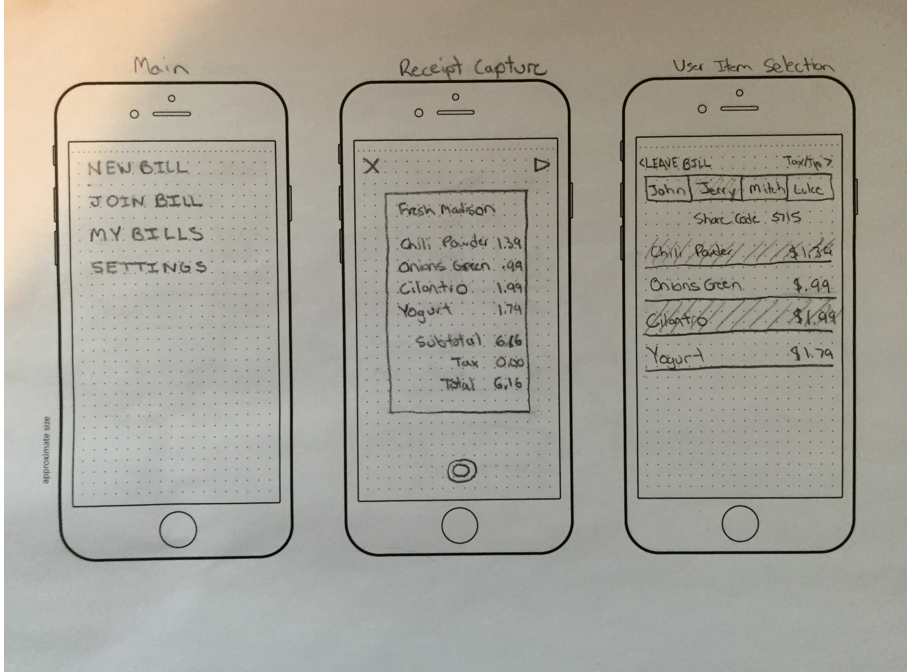 Main
NEW BILL
JOIN BILL
MY BILLS
SETTINGS
approximate size
Receipt Capture
X
Fresh Madison
Chili Powder 1.39
Onions Green .99
Cilantro 1.99
Yogurt 1.79
Subtotal 6.16
Tax 0.00
Total 6.16
User Item Selection
<LEAVE BILL Tax/Tip>
John Jerry Mitch Luke
Share Code 5715
Chili Powder $1.39
Onions Green $.99
Cilantro $1.99
Yogurt $1.79